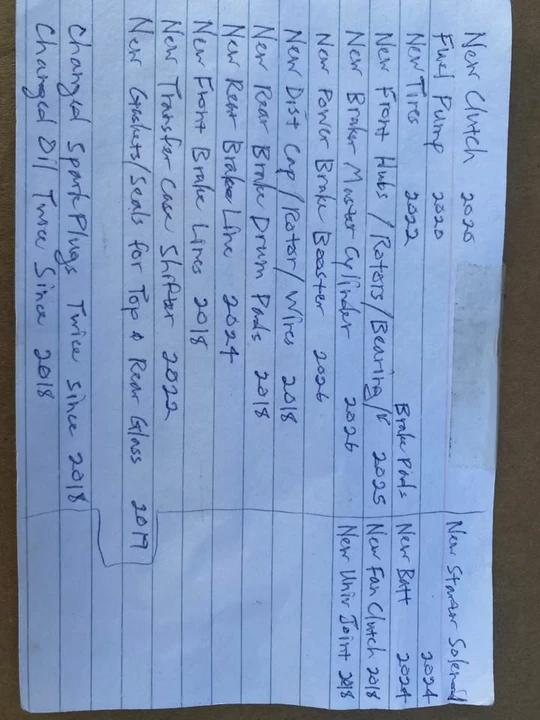 New Clutch 2020
Fuel Pump 2020
New Tires 2022
New Front Hubs / Rotors / Bearing / Brake Pads 2025
New Brake Master Cylinder 2026
New Power Brake Booster 2026
New Dist Cap / Rotor / Wires 2018
New Rear Brake Drum Pads 2018
New Rear Brake Line 2024
New Front Brake Lines 2018
New Transfer Case Shifter 2022
New Gaskets/Seals for Top & Rear Glass 2019
Changed Spark Plugs Twice since 2018
Changed Oil Twice Since 2018
New Starter Solenoid 2024
New Batt 2024
New Fan Clutch 2018
New Univ Joint 2018